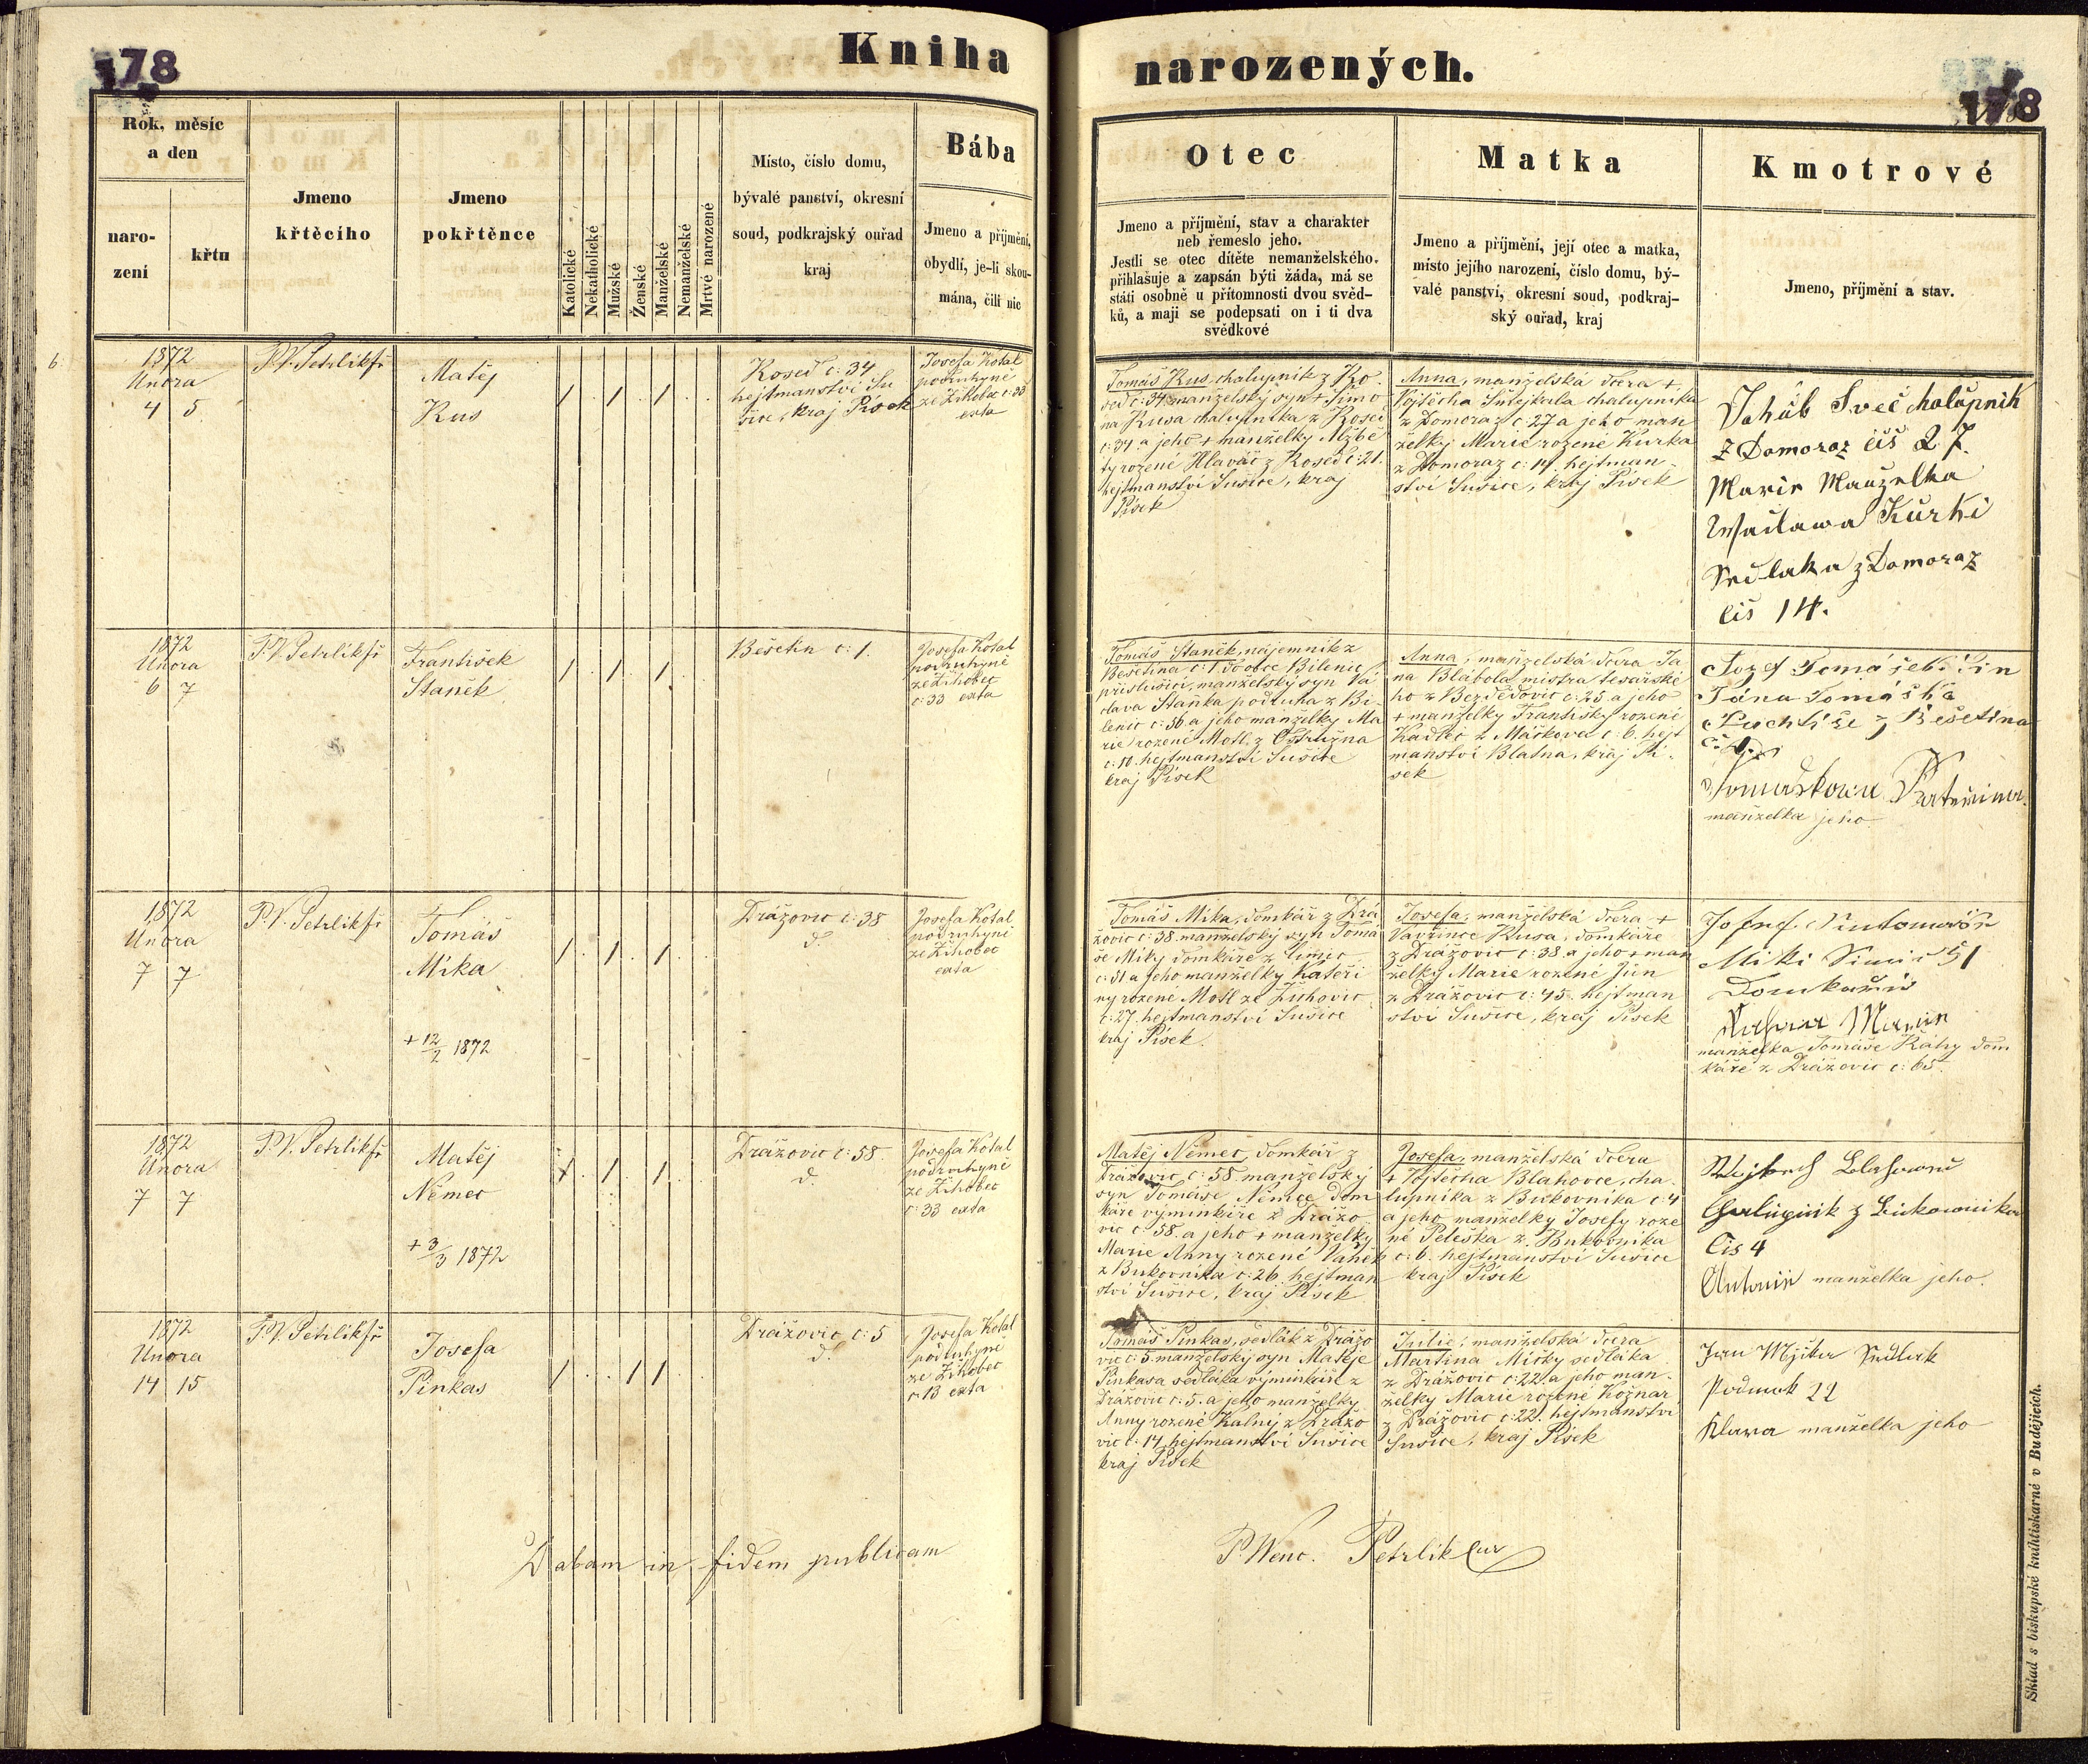 178
Kniha
narozených.
178
Rok, měsíc
a den
naro-
zení
křtu
Jmeno
křtěcího
Jmeno
pokřtěnce
Katolické
Nekatholické
Mužské
Ženské
Manželské
Nemanželské
Mrtvě narozené
Místo, číslo domu,
bývalé panství, okresní
soud, podkrajský ouřad
kraj
Bába
Jmeno a příjmění,
obydlí, je-li skou-
mána, čili nic
Otec
Jmeno a příjmění, stav a charakter
neb řemeslo jeho.
Jestli se otec dítěte nemanželského.
přihlašuje a zapsán býti žádá, má se
státi osobně u přítomnosti dvou svěd-
ků, a mají se podepsati on i ti dva
svědkové
Matka
Jmeno a příjmění, její otec a matka,
místo jejího narození, číslo domu, bý-
valé panství, okresní soud, podkraj-
ský ouřad, kraj
Kmotrové
Jmeno, příjmění a stav.
6.
1872
Února
4 5
P.V. Petrlík
Matěj
Kus
Koseď č: 34
hejtmanství Su
šice, kraj Písek
Josefa Kotal
podruhyně
ze Žihobec č: 33
exta
Tomáš Kus chalupník z Ko
seď č: 34 manželský syn + Šimo
na Kusa chalupníka z Koseď
č: 34 a jeho + manželky Alžbě
ty rozené Hlaváč z Koseď č: 21.
hejtmanství Sušice, kraj
Písek
Anna, manželská dcera +
Vojtěcha chalupníka
z Domoraz č: 27 a jeho man
želky Marie rozené Kurka
z Domoraz č: 14. hejtman
ství Sušice, kraj Písek
Jakub Švec chalupnik
z Domoraz čis 27.
Marie Manzelka
Waclawa Kurki
Sedlaka z Domoraz
čis 14.
1872
Února
6 7
P.V. Petrlík
František
Staněk
Bešetín č: 1.
Josefa Kotal
podruhyně
ze Žihobec
č: 33 exta
Tomáš Staněk, nájemník z
Bešetína č: 1 do obce Bílenic
příslušící, manželský syn Vá
clava Staňka podruha z Bí
lenic č: 56 a jeho manželky Ma
rie rozené Motl z Ostružna
č: 10. hejtmanství Sušice
kraj Písek
Anna, manželská dcera Ja
na Blábola mistra tesařské
ho z Bezdědovic č: 25 a jeho
+ manželky Františky rozené
Kadlec z Mačkova č: 6. hejt
manství Blatna, kraj Pí
sek
Jozef Tomášek Sin
Jána Tomáška
z Bešetina
Tomaškowa Kateřina.
manželka jeho
1872
Února
7 7
P.V. Petrlík
Tomáš
Míka
+ 12/2 1872
Drážovic č: 38
d.
Josefa Kotal
podruhyně
ze Žihobec
exta
Tomáš Míka, domkář z Drá
žovic č: 38. manželský syn Tomá
še Míky domkáře z Símic
č: 51 a jeho manželky Kateři
ny rozené Motl ze Žichovic
č: 27. hejtmanství Sušice
kraj Písek.
Josefa, manželská dcera +
Vavřince Kusa, domkáře
z Drážovic č: 38. a jeho + man
želky Marie rozené Jún
z Drážovic č: 45. hejtman
ství Sušice, kraj Písek
Miki Simic 51
Domkaře
Marie
manželka Tomáše Ráhy dom
káře z Drážovic č: 65.
1872
Února
7 7
P.V. Petrlík
Matěj
Němec
+ 3/3 1872
Drážovic č: 58.
d.
Josefa Kotal
podruhyně
ze Žihobec
č: 33 exta
Matěj Němec, domkář z
Drážovic č: 58 manželský
syn Tomáše Němce dom
káře výminkáře z Drážo
vic č: 58. a jeho + manželky
Marie Anny rozené Vaněk
z Bukovníka č: 26. hejtman
ství Sušice, kraj Písek
Josefa, manželská dcera
+ Vojtěcha Blahovce, cha
lupníka z Bukovníka č: 4
a jeho manželky Josefy roze
né Peleška z Bukovníka
č: 6. hejtmanství Sušice
kraj Písek
Čis 4
Antonie manželka jeho.
1872
Února
14 15
P.V. Petrlík
Josefa
Pinkas
Drážovic č: 5
d.
Josefa Kotal
podruhyně
ze Žihobec
č: 13 exta
Tomáš Pinkas, sedlák z Drážo
vic č: 5. manželský syn Matěje
Pinkasa sedláka výminkáře z
Drážovic č: 5. a jeho manželky
Anny rozené Kalný z Drážo
vic č: 14 hejtmanství Sušice
kraj Písek
Julie, manželská dcera
Martina Mičky sedláka
z Drážovic č: 22. a jeho man
želky Marie rozené Kožnar
z Drážovic č: 22. hejtmanství
Sušice, kraj Písek
Jan Sedlak
22
Klara manželka jeho
Dabam in fidem publicam
P. Wenc. Petrlík Cur
Sklad s biskupské knihtiskárně v Budějicích.